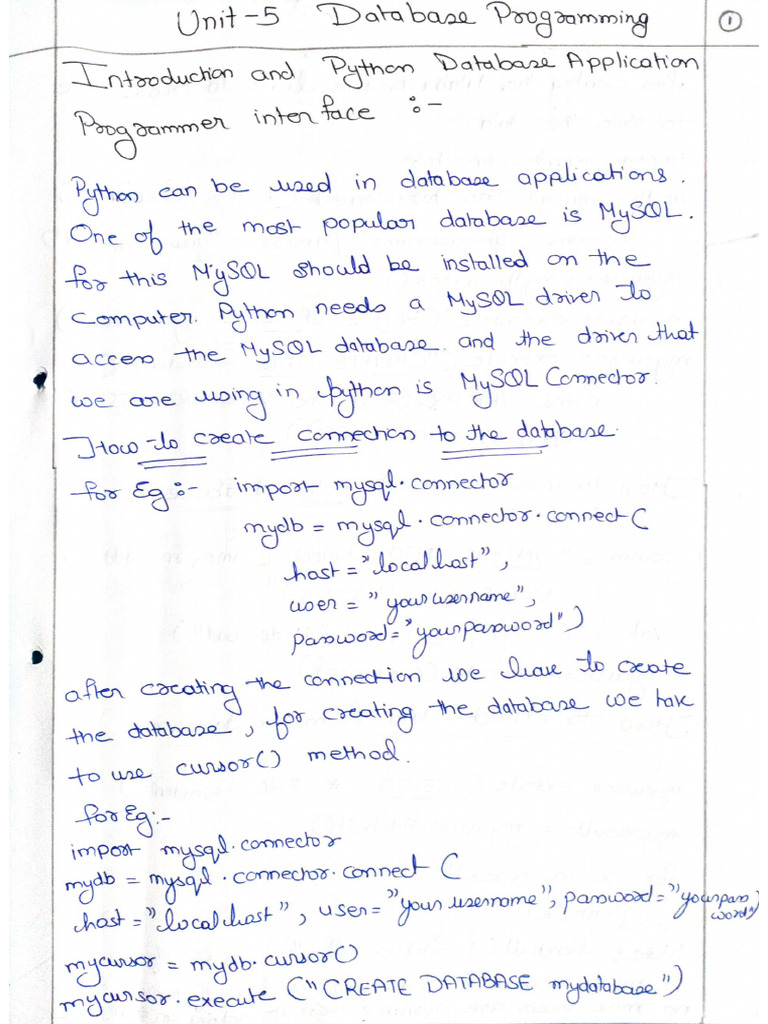 Unit-5 Database Programming
1
Introduction and Python Database Application
Programmer interface :-
Python can be used in database applications.
One of the most popular database is MySQL.
for this MySQL should be installed on the
computer. Python needs a MySQL driver to
access the MySQL database. and the driver that
we are using in python is MySQL Connector.
How to create connection to the database.
for Eg :- import mysql.connector
mydb = mysql.connector.connect (
host = "localhost",
user = "yourusername",
password = "yourpassword")
after creating the connection we have to create
the database, for creating the database we have
to use cursor() method.
for Eg:-
import mysql.connector
mydb = mysql.connector.connect (
host = "localhost", user = "your username", password = "yourpass
word")
mycursor = mydb.cursor()
mycursor.execute ("CREATE DATABASE mydatabase")